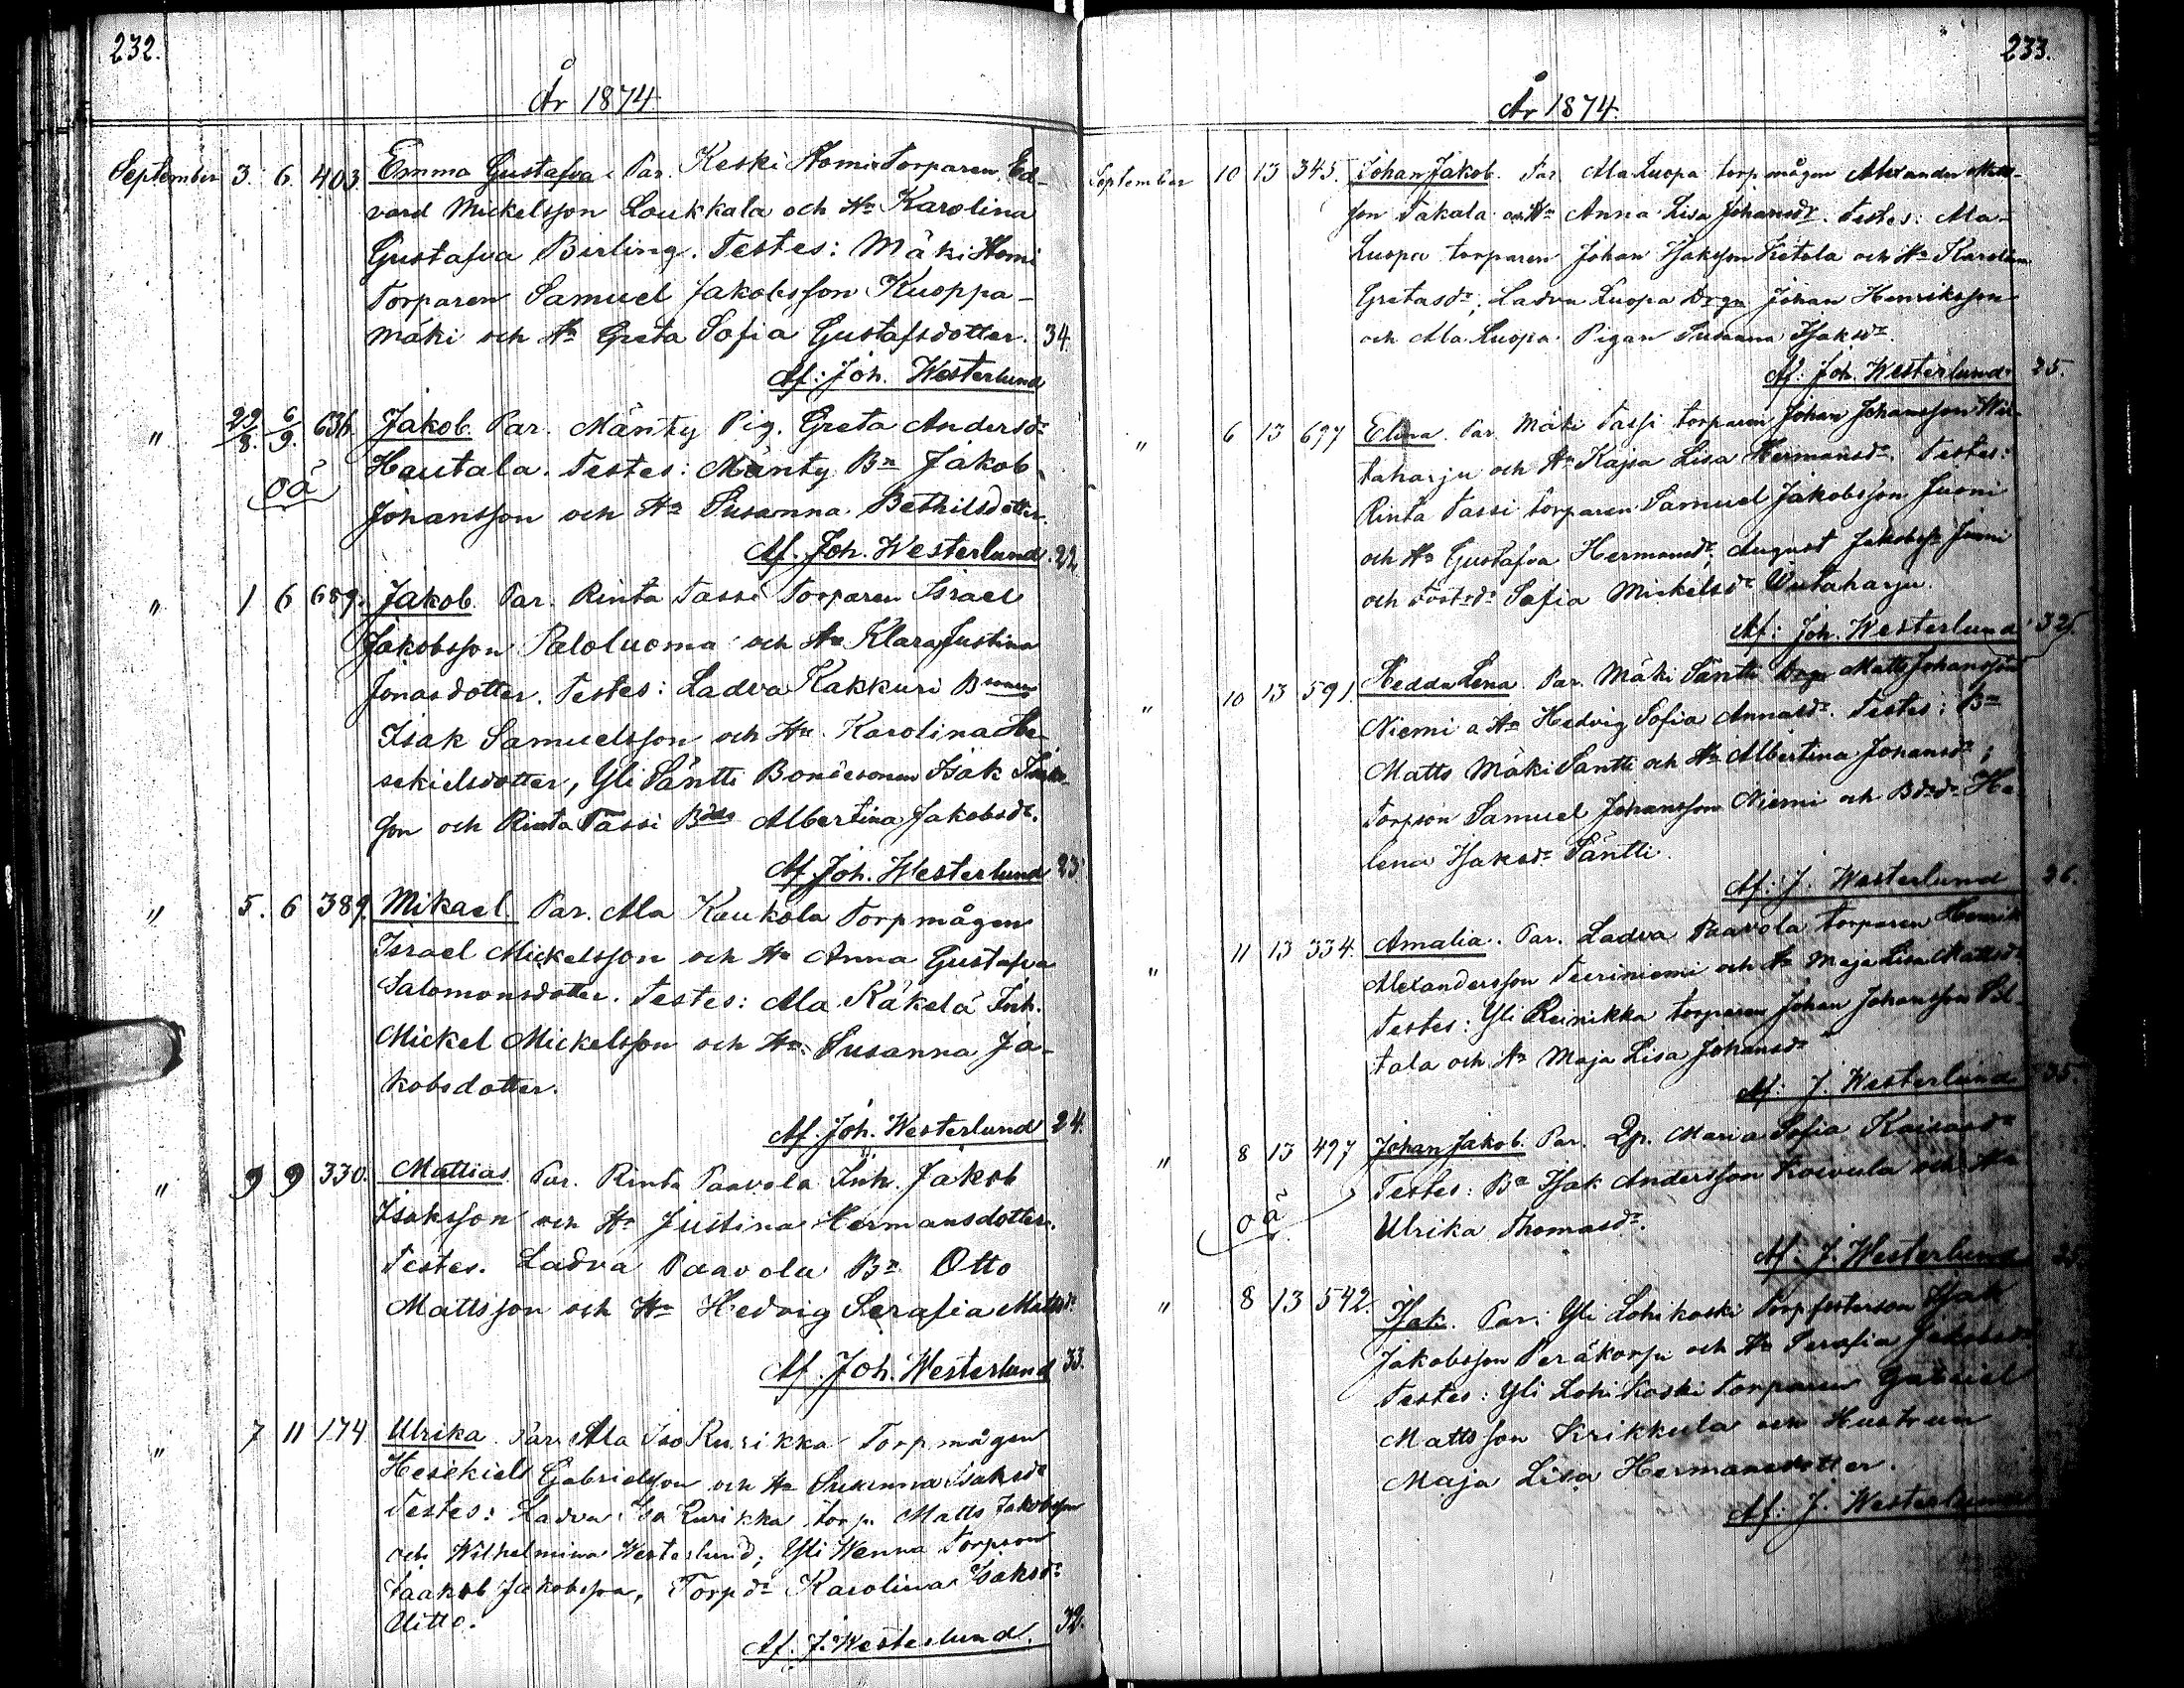 232.
År 1874
September 3. 6. 403. Emma Gustafva. Par. Keski Nomi Torparen Ed-
vard Mickelsson Loukkala och Hu Karolina
Gustafva Birling. Testes: Mäki Nomi
Torparen Samuel Jakobsson Kuoppa-
mäki och Hu Greta Sofia Gustafsdotter. 34.
Af: Joh. Westerlund
" 29/8. 6/9. 636. Jakob. Par. Mänty Pig. Greta Andersdr
Hautala. Testes: Mänty Bn Jakob
oä
Johansson och Hu Susanna Bethilsdotter.
Af. Joh. Westerlund. 22.
" 1 6 689. Jakob. Par. Rinta Tassi Torparen Israel
Jakobsson Paloluoma och Hu Klara Justina
Jonasdotter. Testes: Ladva Kakkuri
Isak Samuelsson och Hu Karolina He-
sekielsdotter, Yli Säntti Bondesonen Isak
son och Rinta Tassi Albertina Jakobsdr.
Af. Joh. Westerlund 23
" 5. 6 389. Mikael. Par. Ala Kaukola Torpmågen
Israel Mickelsson och Hu Anna Gustafva
Salomonsdotter. Testes: Ala Käkelä Inh.
Mickel Mickelsson och Hu Susanna Ja-
kobsdotter.
Af. Joh. Westerlund 24.
" 9 9 330. Mattias. Par. Rinta Paavola Inh. Jakob
Isaksson och Hu Justina Hermansdotter.
Testes. Ladva Paavola Bn Otto
Mattsson och Hu Hedvig Serafia Mattsdr
Af. Joh. Westerlund 33.
" 7 11 174 Ulrika. Par. Ala Iso Kurikka Torpmågen
Hesekiel Gabrielsson och Hu Susanna Isaksdr
Testes: Ladva Iso Kurikka torp. Matts Jakobsson
och Wilhelmina Westerlund; Yli Wenna Torpson
Jaakob Jakobsson, Torpdr Karolina Isaksdr
Uitto.
Af. J. Westerlund. 32.
233.
År 1874.
September 10 13 345. Johan Jakob. Par. Ala Luopa torpmågen Alexander Matts-
son Takala och Hu Anna Lisa Johansdr. Testes: Ala-
Luopa torparen Johan Isaksson Ketola och Hu Karolina
Gretasdr; Ladva Luopa Drgn Johan Henriksson
och Ala Luopa Pigan Susanna Isaksdr.
Af: Joh. Westerlund 25.
" 6 13 697 Elina. Par. Mäki Tassi torparen Johan Johansson Wii-
taharju och Hu Kajsa Lisa Hermansdr. Testes:
Rinta Tassi torparen Samuel Jakobsson Juoni
och Hu Gustafva Hermansdr; August Jakobsson Juoni
och Sofia Mickelsdr Wiitaharju.
Af: Joh. Westerlund 32.
" 10 13 591. Hedda Lena. Par. Mäki Säntti Drgn Matts Johansson
Niemi o Hu Hedvig Sofia Annasdr. Testes: Bn
Matts Mäki Säntti och Hu Albertina Johansdr;
Torpson Samuel Johansson Niemi och Bdedr He-
lena Isaksdr Säntti.
Af: J. Westerlund 36.
" 11 13 334. Amalia. Par. Ladva Paavola torparen Henrik
Alexandersson Teeriniemi och Hu Maja Lisa Mattsdr
Testes: Yli Reinikka torparen Johan Johansson Pel-
tala och Hu Maja Lisa Johansdr
Af: J. Westerlund 35.
" 8 13 497 Johan Jakob. Par. Qp. Maria Sofia Kaisasdr
Testes: Bn Isak Andersson Koivula och Hu
oä
Ulrika Thomasdr.
Af: J. Westerlund 25.
" 8 13 542. Isak. Par. Yli Lohikoski Torpfosterson Isak
Jakobsson Peräkorpi och Hu Serafia Jakobsdr
Testes: Yli Lohikoski Torparen Gabriel
Mattsson Krikkula och Hustrun
Maja Lisa Hermansdotter.
Af: J. Westerlund